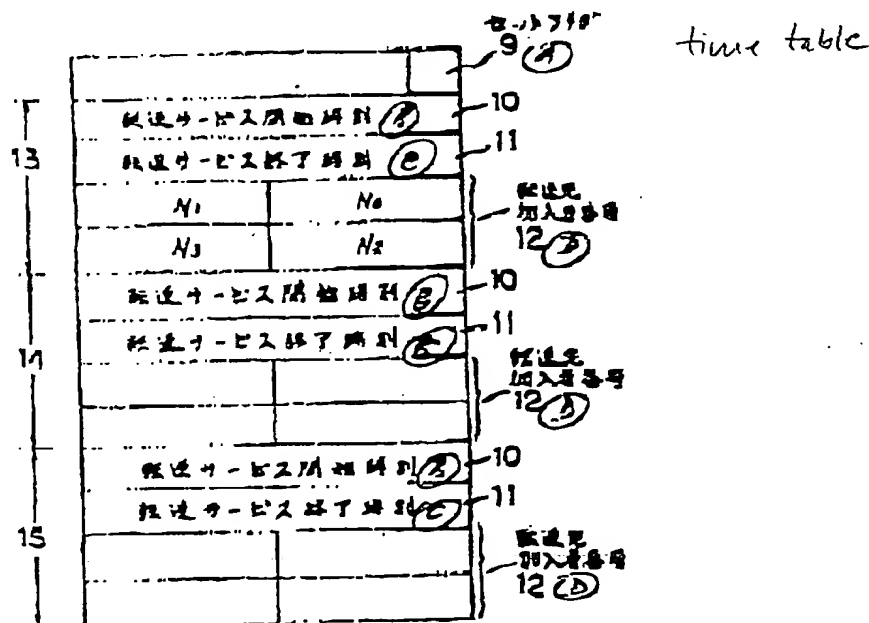 time table
9 A
10
転送サービス開始時刻 B
11
転送サービス終了時刻 C
13
N1 N0
転送先
加入者番号
N3 N2
12 D
10
転送サービス開始時刻 B
11
転送サービス終了時刻 C
14
転送先
加入者番号
12 D
10
転送サービス開始時刻 B
11
転送サービス終了時刻 C
15
転送先
加入者番号
12 D